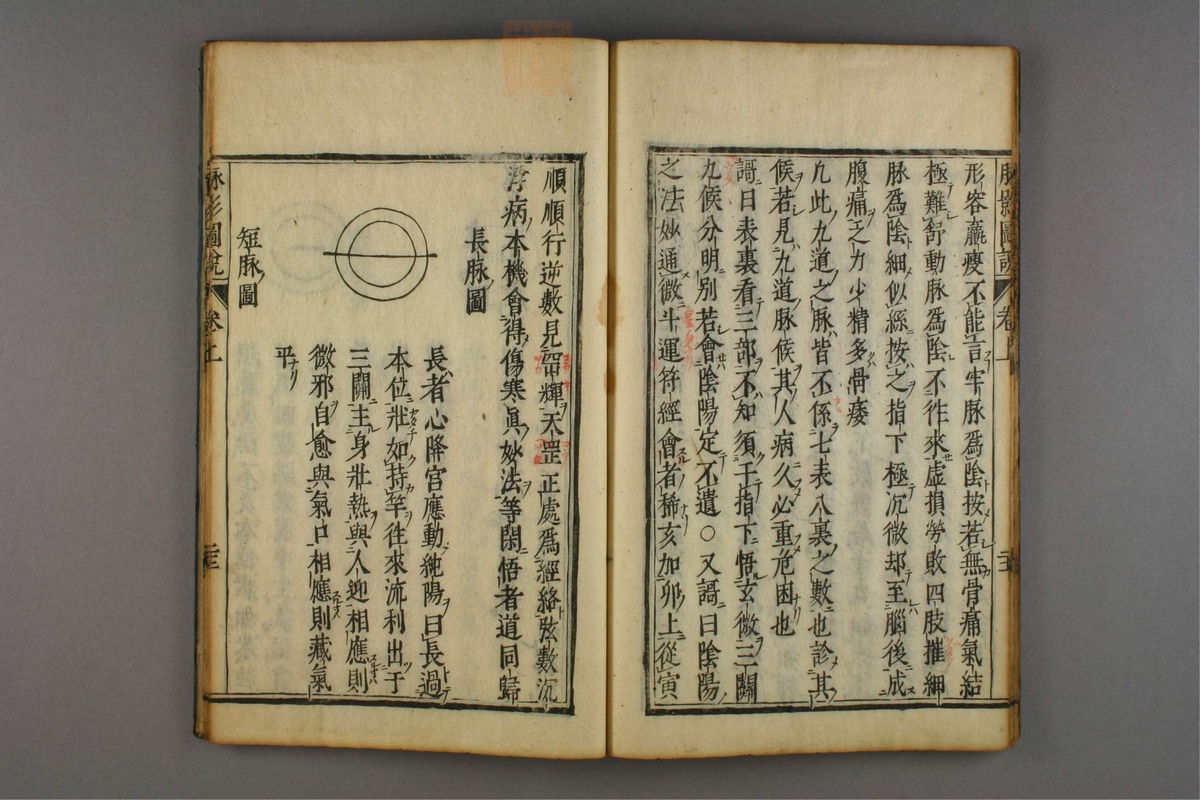 形容羸瘦不能言牢脉爲陰按若無骨痛氣結
極難舒動脉爲陰不徃來虚損勞敗四肢摧細
脉爲陰細似絲按之指下極沉微却至腦後成
腹痛乏力少精多骨痿
凢此九道之脉皆不係七表八裏之數也診其
候若見九道脉候其人病久必重危困也
謌曰表裏看三部不知須于指下悟玄微三關
九候分明別若會陰陽定不遺○又謌曰陰陽
之法妙通微斗運符經會者稀亥加卯上從寅
順順行逆數見罡輝天罡正處爲經絡弦數沉
浮病本機會得傷寒眞妙法等閑悟者道同歸
長脉圖
長者心降宫應動純陽曰長過
本位壯如持竿徃來流利出于
三關主身壯熱與人迎相應則
微邪自愈與氣口相應則藏氣
平
短脉圖
脉影圖說
卷上